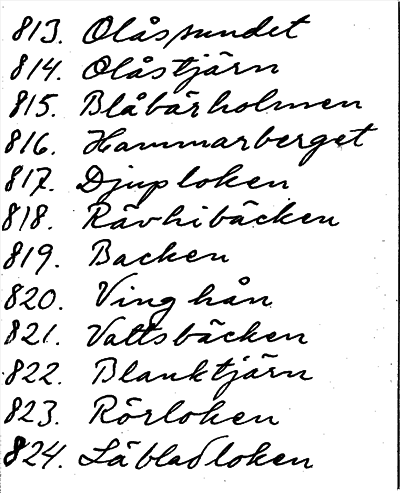 813. Olåssundet
814. Olåstjärn
815. Blåbärholmen
816. Hammarberget
817. Djuploken
818. Rävhibäcken
819. Backen
820. Vinghån
821. Valtsbäcken
822. Blanktjärn
823. Rörloken
824. Läbladloken